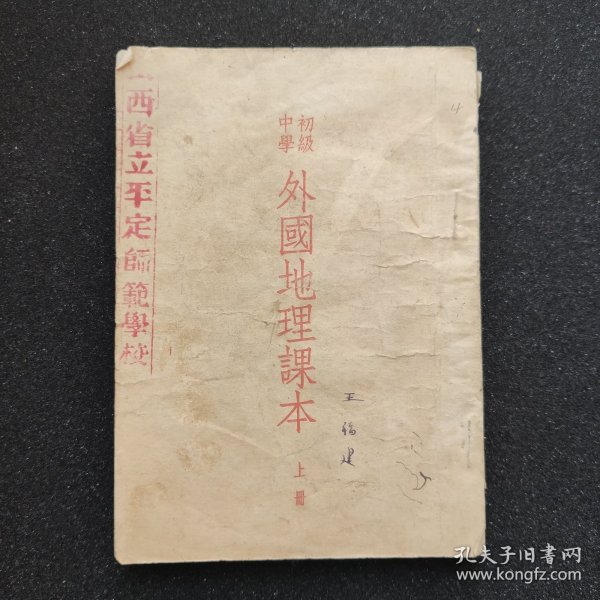 初級
中學
外國地理課本
上冊
西省立平定師範學校
王福建
孔夫子旧书网
www.kongfz.com